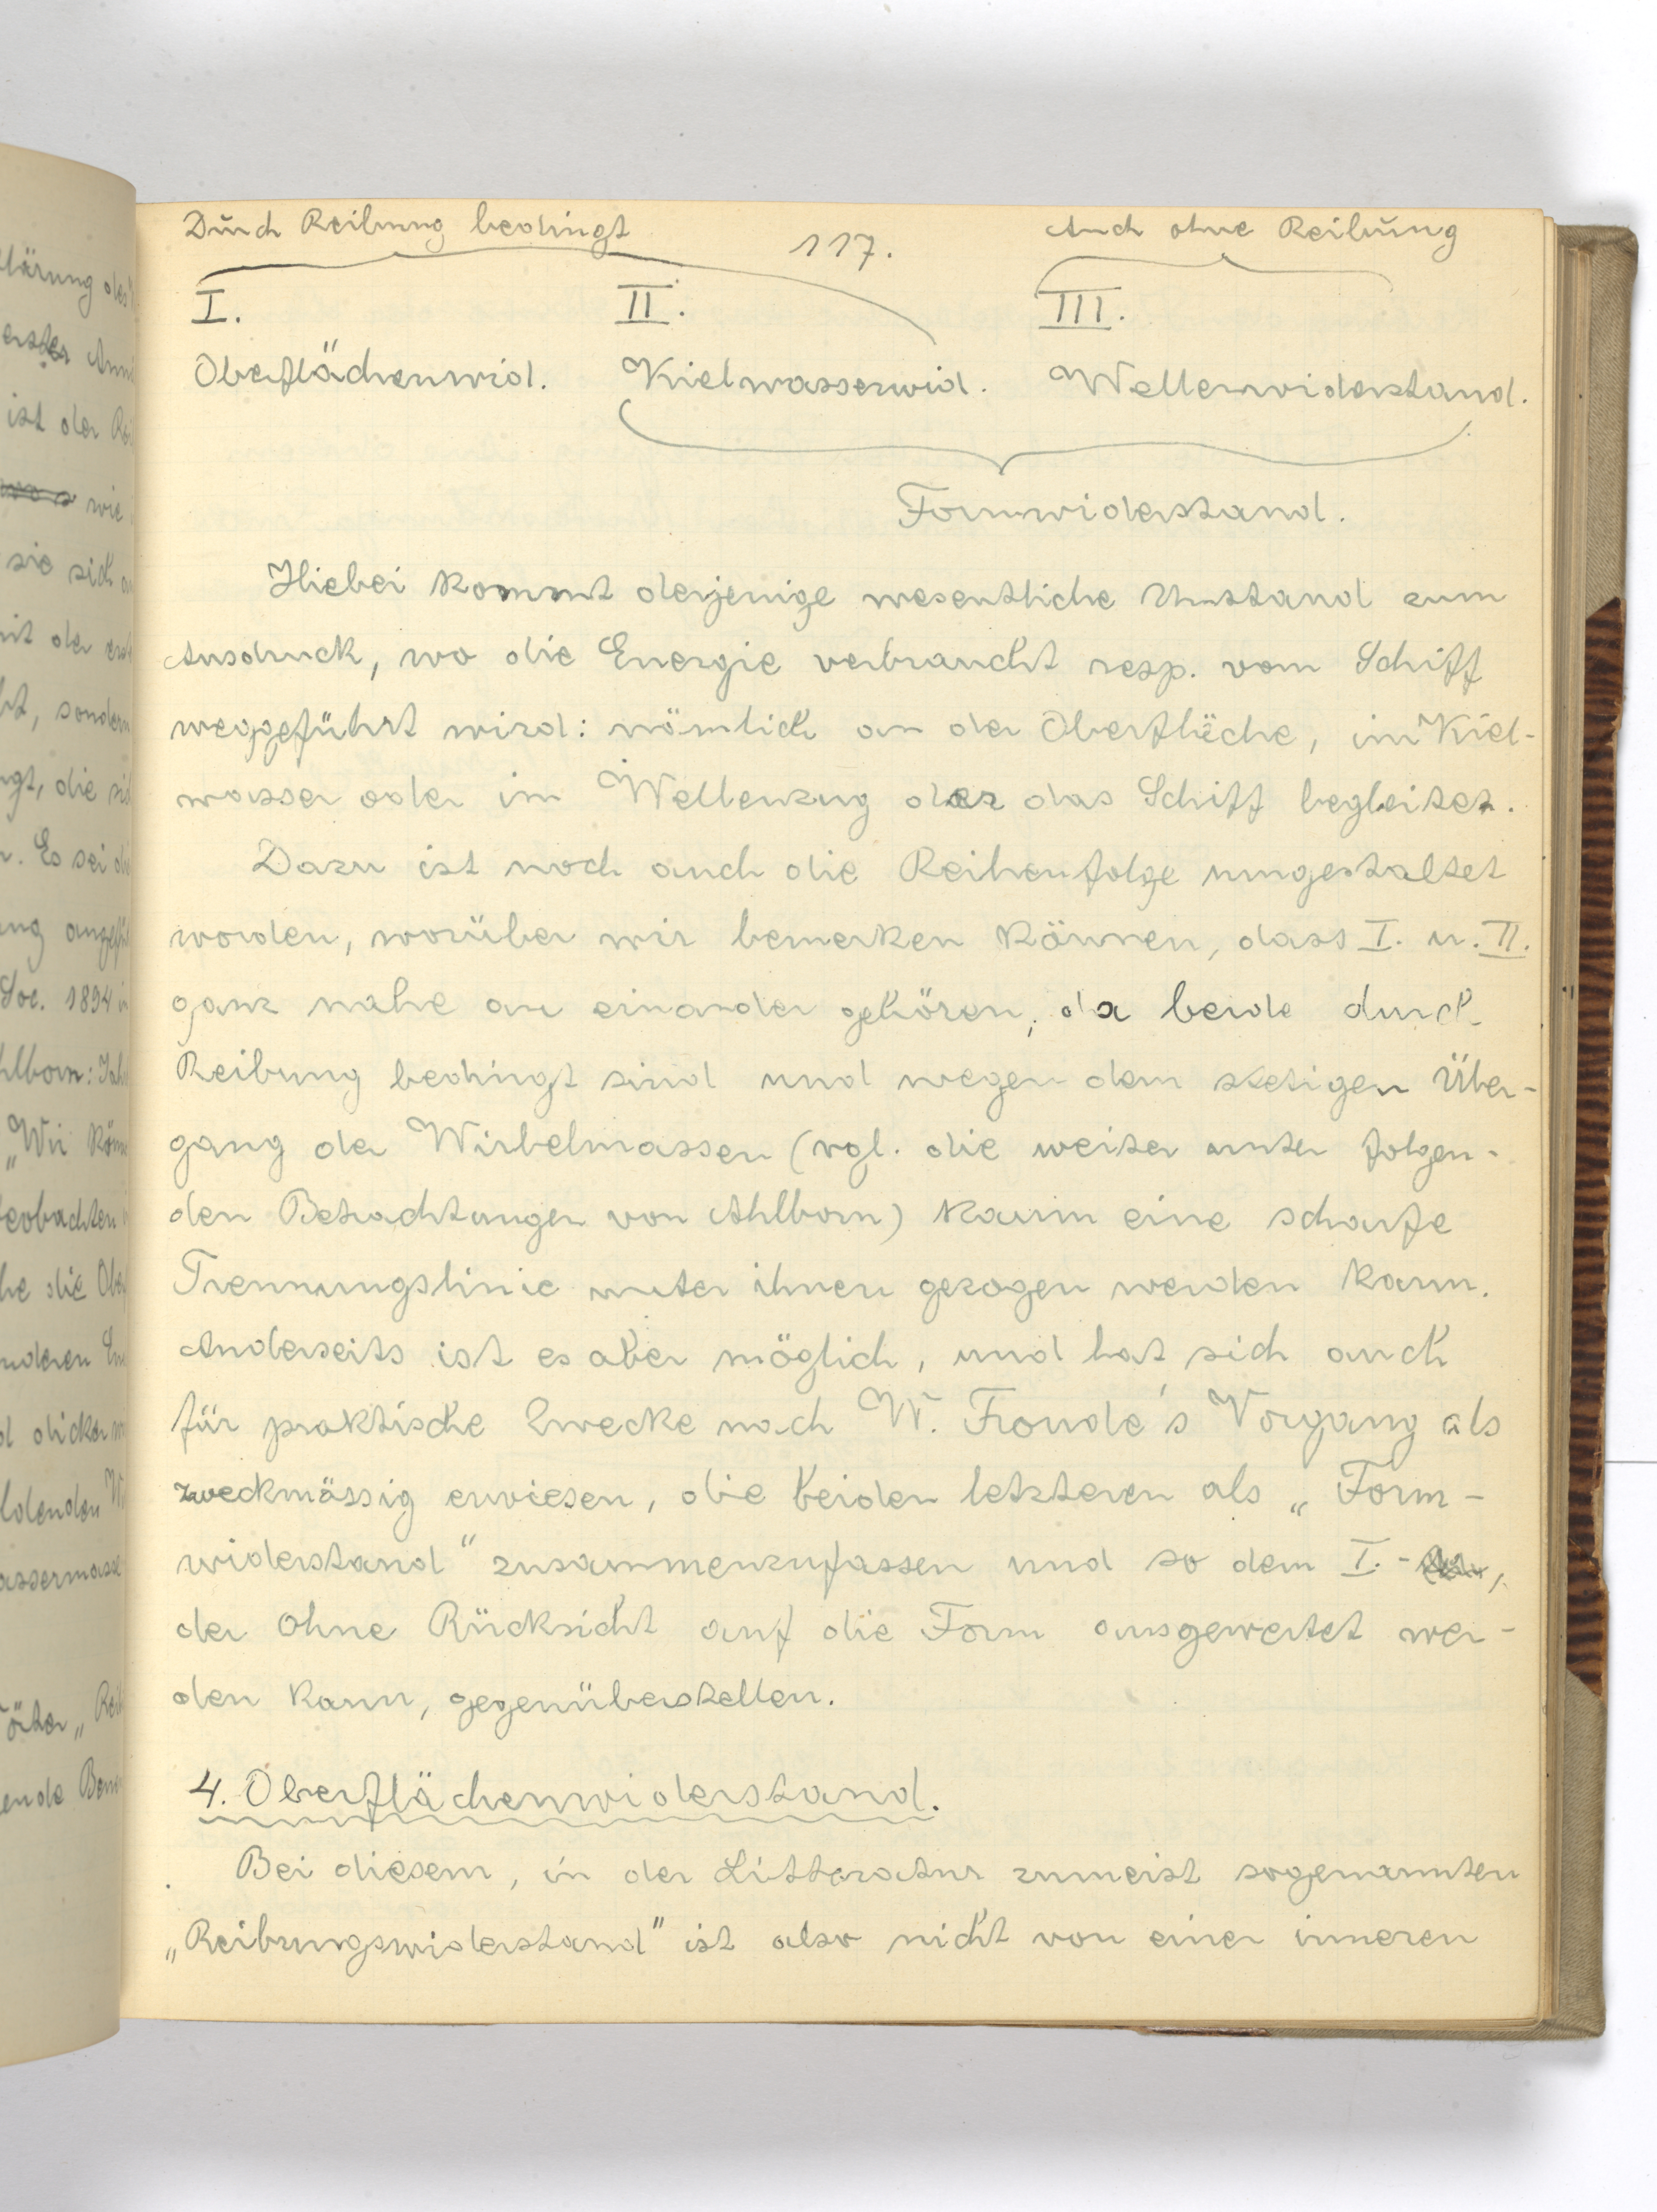 Durch Reibung bedingt
117.
Auch ohne Reibung
I.
II.
III.
Oberflächenwid.
Kielwasserwid.
Wellenwiderstand.
Formwiderstand.
Hiebei kommt derjenige wesentliche Umstand zum
Ausdruck, wo die Energie verbraucht resp. vom Schiff
weggeführt wird: nämlich an der Oberfläche, im Kiel-
wasser oder im Wellenzug der das Schiff begleitet.
Dazu ist noch auch die Reihenfolge umgestaltet
worden, worüber wir bemerken können, dass I. u. II.
ganz nahe an einander gehören, da beide durch
Reibung bedingt sind und wegen dem stetigen Über-
gang der Wirbelmassen (vgl. die weiter unter folgen-
den Betrachtungen von Ahlborn) kaum eine scharfe
Trennungslinie unter ihnen gezogen werden kann.
Anderseits ist es aber möglich, und hat sich auch
für praktische Zwecke nach W. Froude's Vorgang als
zweckmässig erwiesen, die beiden letzteren als „Form-
widerstand" zusammenzufassen und so dem I.-
der ohne Rücksicht auf die Form ausgewertet wer-
den kann, gegenüberstellen.
4. Oberflächenwiderstand.
Bei diesem, in der Litteratur zumeist sogenannten
„Reibungswiderstand" ist also nicht von einer inneren
lärung des
erster
ist der
wie
sie sich
mit der
sondern
die
Es sei
ang
Soc. 1894
Ahlborn:
„Wir
beobachten
die
anderen
dicker
„